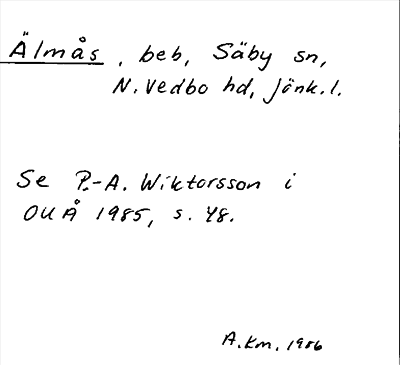 Älmås, beb, Säby sn,
N. Vedbo hd, Jönk. l.
Se P.-A. Wiktorsson i
OUÅ 1985, s. 48.
A. Km. 1986